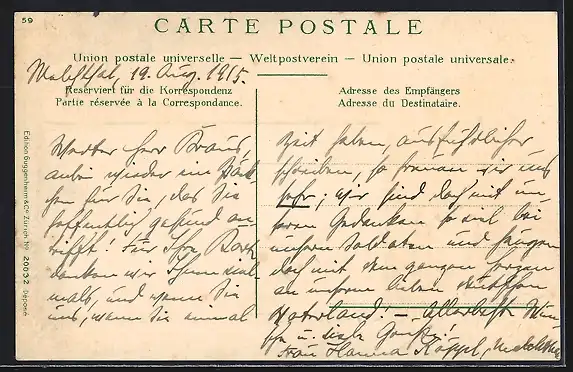 59
CARTE POSTALE
Union postale universelle — Weltpostverein — Union postale universale.
Malchthal, 19. Aug. 1915.
Reserviert für die Korrespondenz
Partie réservée à la Correspondance.
Adresse des Empfängers
Adresse du Destinataire.
Edition Guggenheim & Co. Zürich Nr. 20032 Deposé
Werter Herr Kraus,
anbei wieder ein Päck-
chen für Sie, das Sie
hoffentlich gesund an-
trifft! Für Ihre Karte
danken wir Ihnen viel-
mals, und wenn Sie
uns, wenn Sie einmal
Zeit haben, ausführlicher
schreiben, so freuen wir uns
sehr; wir sind doch mit un-
seren Gedanken so viel bei
unseren Soldaten und
doch mit dem ganzen Herzen
an unserem lieben deutschen
Vaterland! — Allerbeste Wün-
sche u. viele Grüße!
Frau Hanna Köppl,